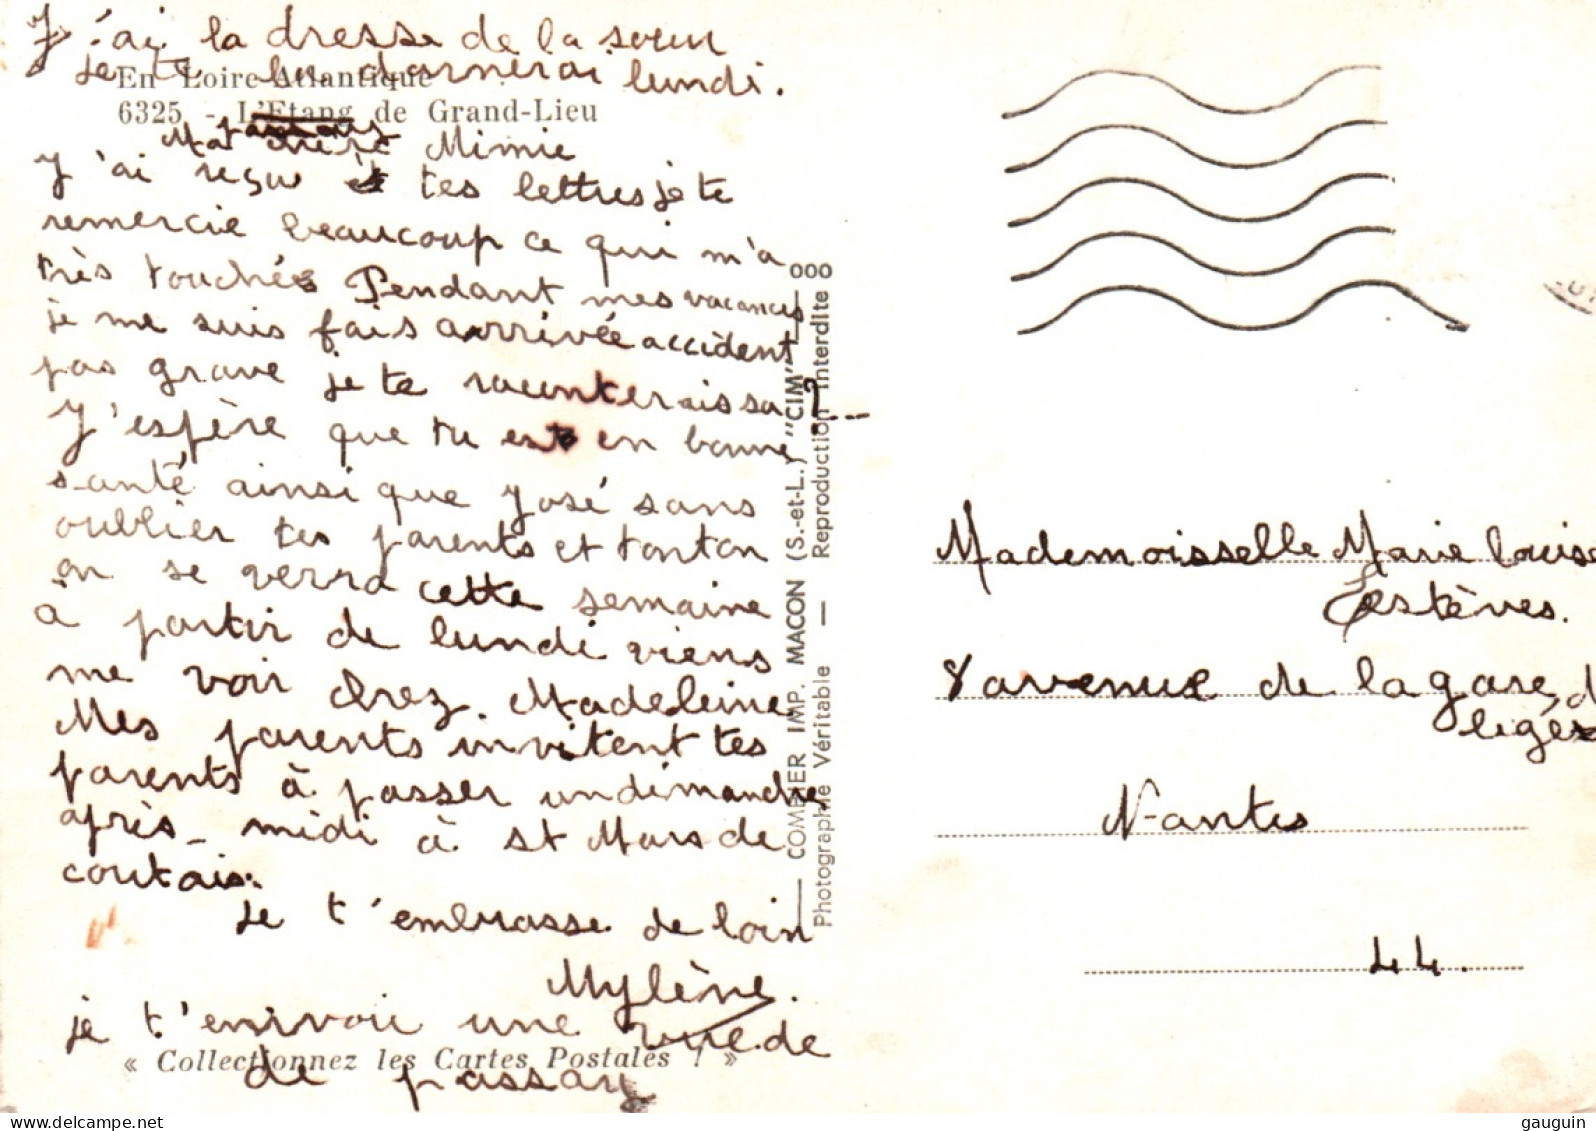 J'ai la dresse de la sœur
je te la donnerai lundi.
En Loire-Atlantique
6325 - L'Etang de Grand-Lieu
passay
Ma chère Mimie
J'ai reçu et tes lettres je te
remercie beaucoup ce qui m'a
très touchés Pendant mes vacances
je me suis fais arrivée accident
pas grave je te raconterais sa ?...
J'espère que tu est en bonne
santé ainsi que José sans
oublier tes parents et tonton
on se verra cette semaine
à partir de lundi viens
me voir chez Madeleine
Mes parents invitent tes
parents à passer un dimanche
après-midi à St Mars de
coutais.
Je t'embrasse de loin
Mylène.
je t'envoie une vue de
« Collectionnez les Cartes Postales ! »
de passay
COMBIER IMP. MACON (S.-et-L.) "CIM"
Photographie Véritable — Reproduction Interdite
000
Mademoisselle Marie louise
Estèves.
8 avenue de la gare, d
ligé
Nantes
44.
delcampe.net
gauguin